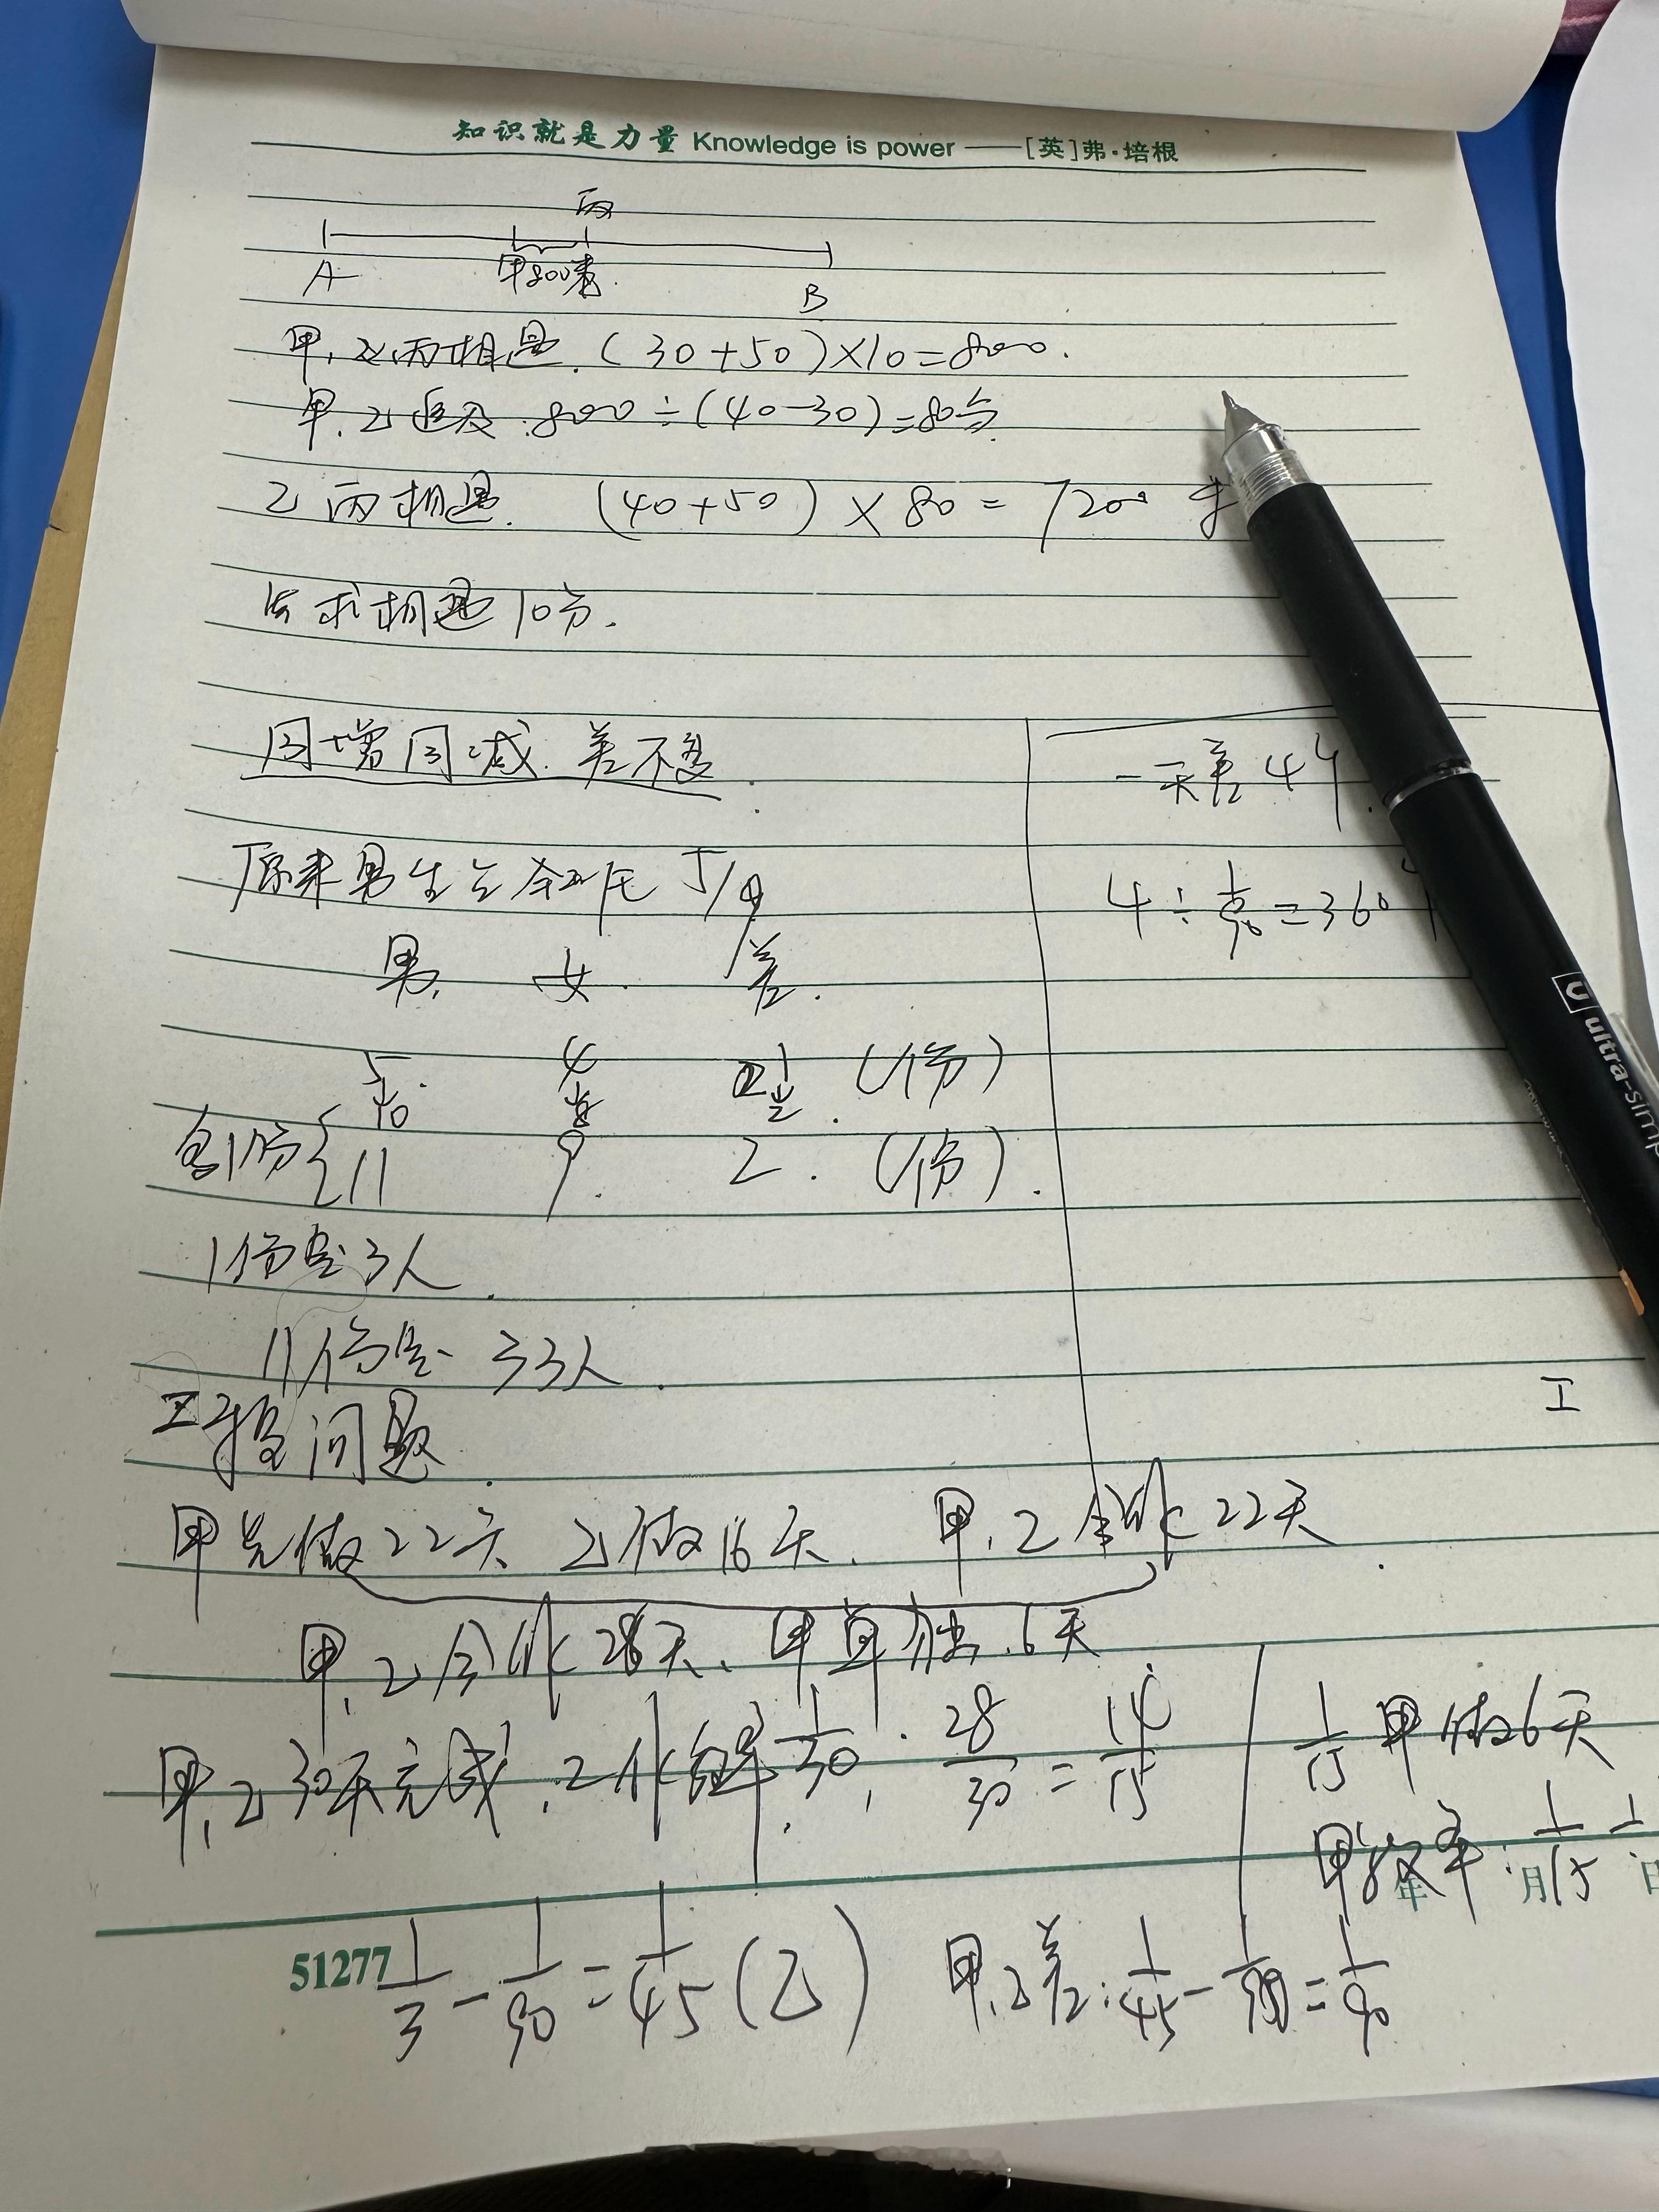 知识就是力量 Knowledge is power ——[英]弗·培根
丙
甲800米
A
B
甲、乙丙相遇. (30+50)×10=800.
甲.乙追及.800÷(40-30)=80分.
乙丙相遇. (40+50)×80=7200
相遇10分.
同增同减.差不变.
原来男生占全班的5/9
男. 女. 差.
5 4 1 (份)
10 8 2
11 9. 2. (份).
1份是3人.
11份是33人.
一天差4个.
4÷1/90=360
工程问题.
工
甲先做22天 乙做16天. 甲.乙合作22天.
甲.乙合作28天、甲单独.6天
甲,乙30天完成,工作效率1/30, 28/30=14/15
1/15甲做6天
甲效率:1/15
年 月 日
51277
1/3-1/90=1/45(乙) 甲.乙差:1/45-1/90=1/90
U ultra-simp